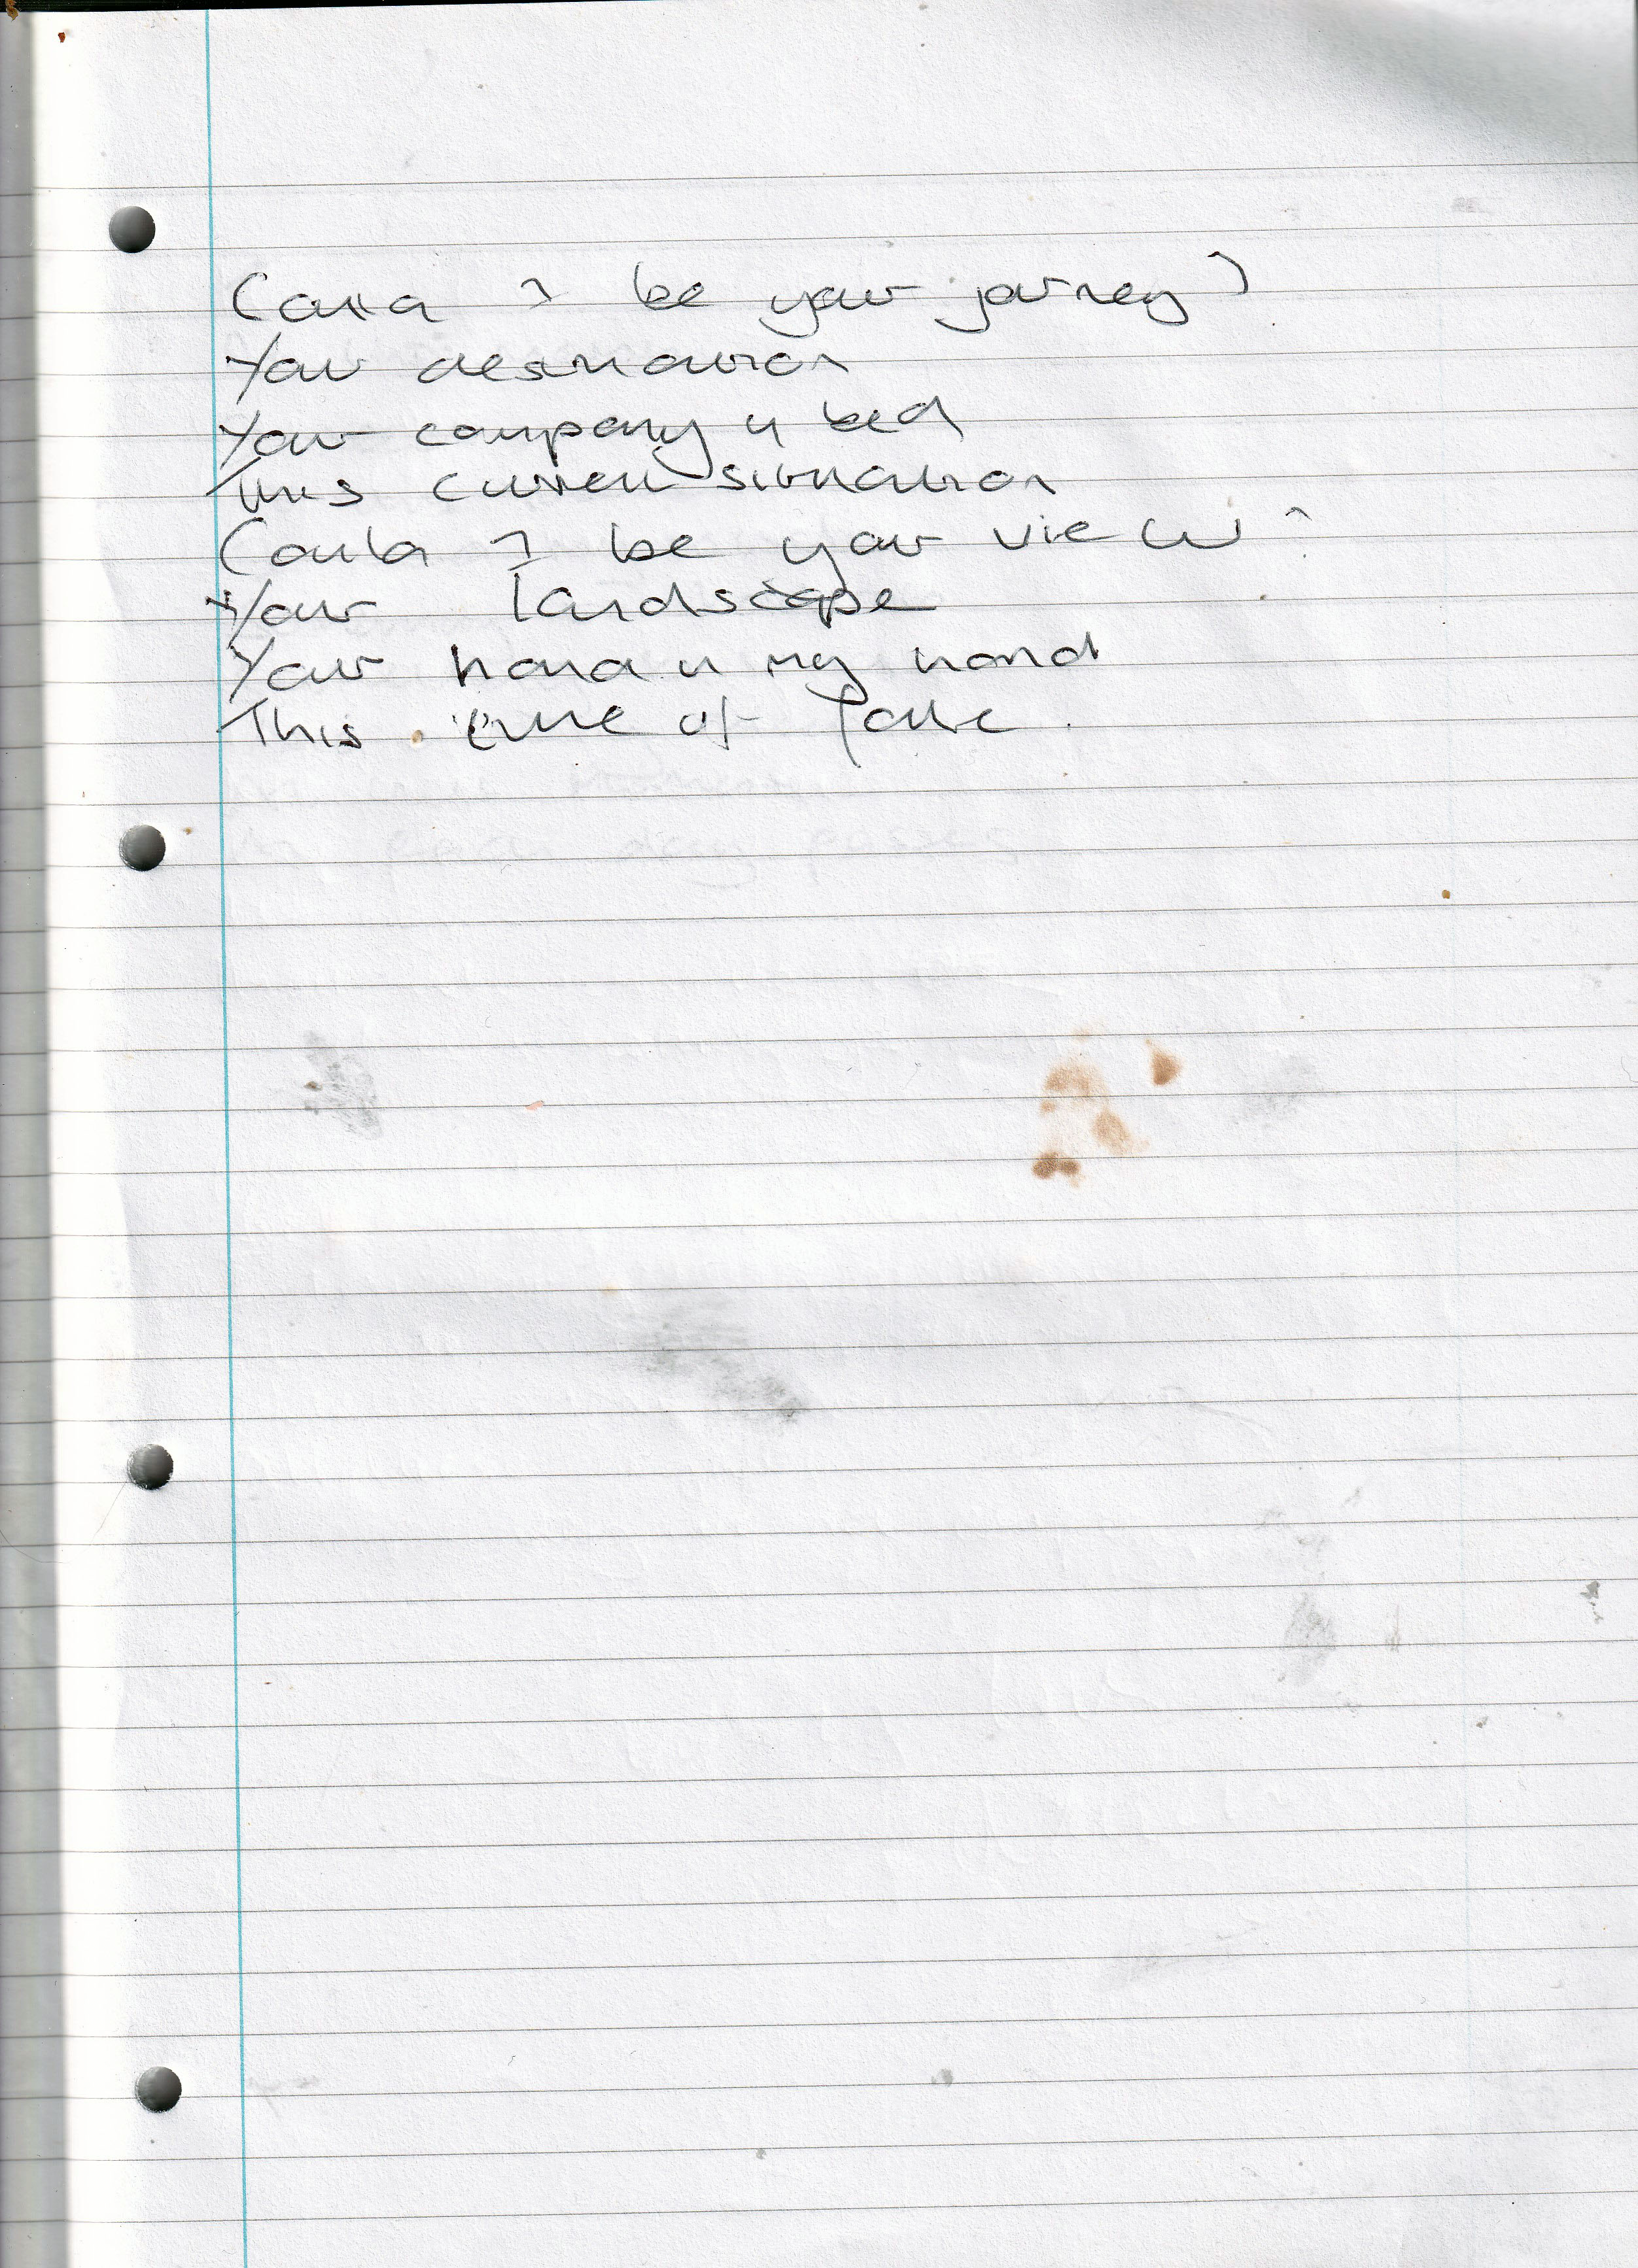 Could I be your journey?
Your destination
Your company in bed
This current situation
Could I be your view?
Your landscape
Your hand in my hand
This time of